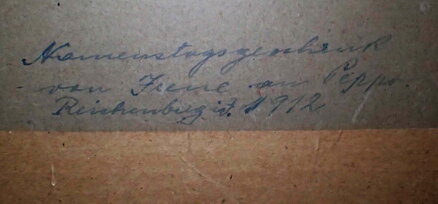 Namenstagsgeschenk
von Irene an Peppo.
Reichenberg i. 1912